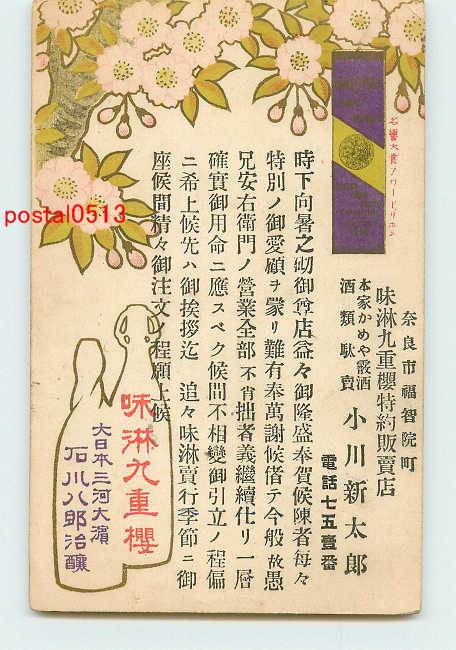 名譽大賞ノワードリボン
奈良市福智院町
味淋九重櫻特約販賣店
本家かめや霰酒
酒類駄賣
小川新太郎
電話七五壹番
時下向暑之砌御尊店益々御隆盛奉賀候陳者毎々
特別ノ御愛顧ヲ蒙リ難有奉萬謝候偖テ今般故愚
兄安右衛門ノ營業全部不肖拙者義繼續仕リ一層
確實御用命ニ應スベク候間不相變御引立ノ程偏
ニ希上候先ハ御挨拶迄 追々味淋賣行季節ニ御
座候間精々御注文ノ程願上候
味淋九重櫻
大日本三河大濱
石川八郎治釀
postal0513